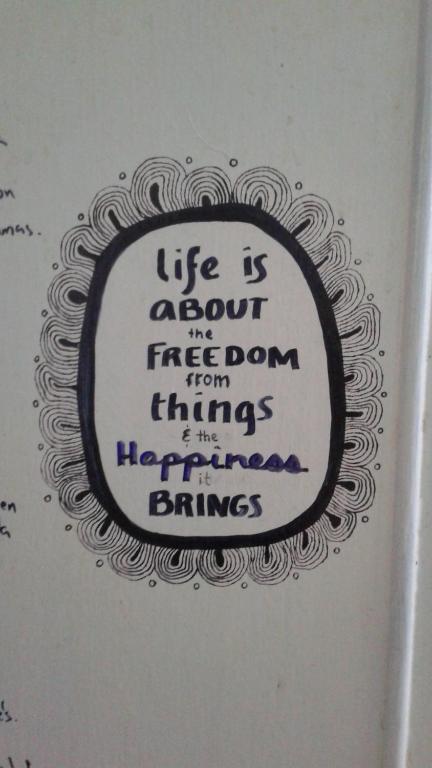 life is
ABOUT
the
FREEDOM
from
things
& the
Happiness
it
BRINGS
on
mas.
en